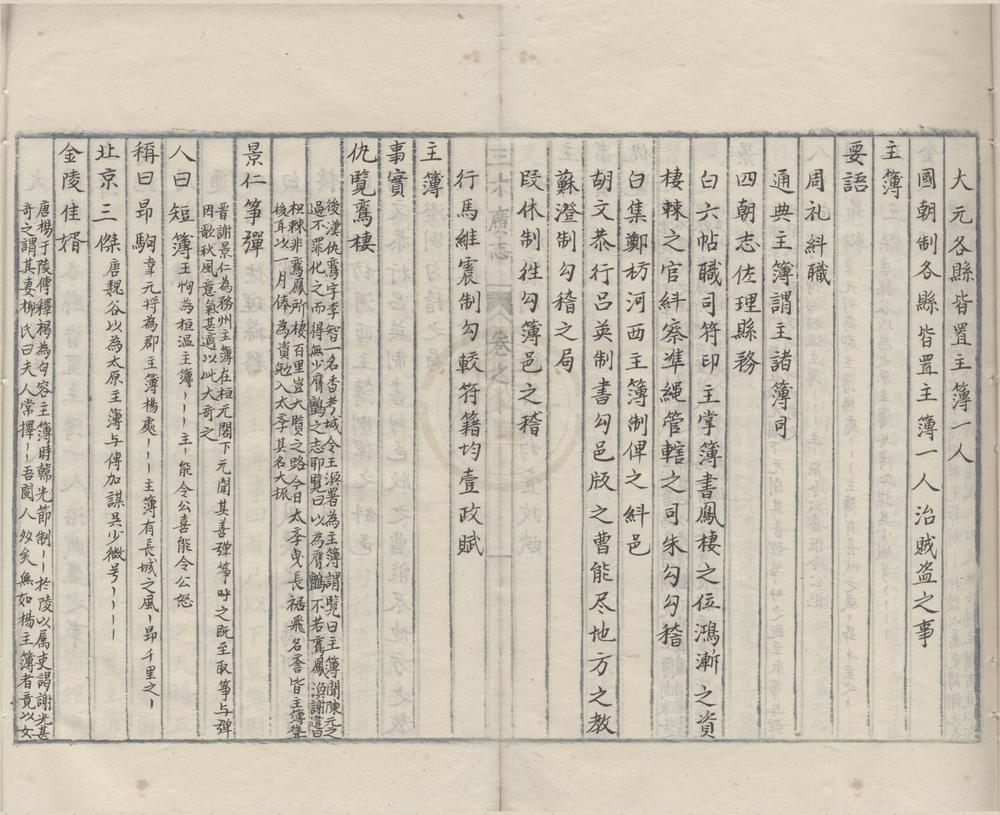 大元各縣皆置主簿一人
國朝制各縣皆置主簿一人治賊盗之事
主簿
要語
周礼糾職
通典主簿謂主諸簿司
四朝志佐理縣務
白六帖職司符印主掌簿書鳳棲之位鴻漸之資
棲棘之官糾察準繩管轄之司朱勾勾稽
白集鄭枋河西主簿制俾之糾邑
胡文恭行呂英制書勾邑版之曹能尽地方之教
蘇澄制勾稽之局
段休制徃勾簿邑之稽
行馬維震制勾較符籍均壹政賦
主簿
事實
仇覧鸞棲
後漢仇鸞字季智一名香考城令王渙署為主簿謂覧曰主簿聞陳元之
過不罪化之而得無少鷹鸇之志耶覧曰以為鷹鸇不若鸞鳳渙謝遣曰
枳棘非鸞鳳所棲百里豈大賢之路今日太季曳長裾飛名譽皆主簿
後耳以一月俸為資勉入太季其名大振
景仁箏彈
晉謝景仁為務州主簿在桓元閣下元聞其善弹箏呼之既至取箏与弹
因歌秋風意氣甚邁以此大奇之
人曰短簿
王恂為桓温主簿丶丶丶主丶能令公喜能令公怒
稱曰昂駒
韋元将為郡主簿楊處丶丶丶主簿有長城之風丶昂千里之丶
北京三傑
唐魏谷以為太原主簿与傳加謀吴少微号丶丶丶丶
金陵佳婿
唐楊于陵傳釋褐為句容主簿時韓光節制丶丶於陵以属吏謁謝光甚
奇之謂其妻栁氏曰夫人常擇丶丶吾閱人多矣無如楊主簿者竟以女
三才廣志
卷之